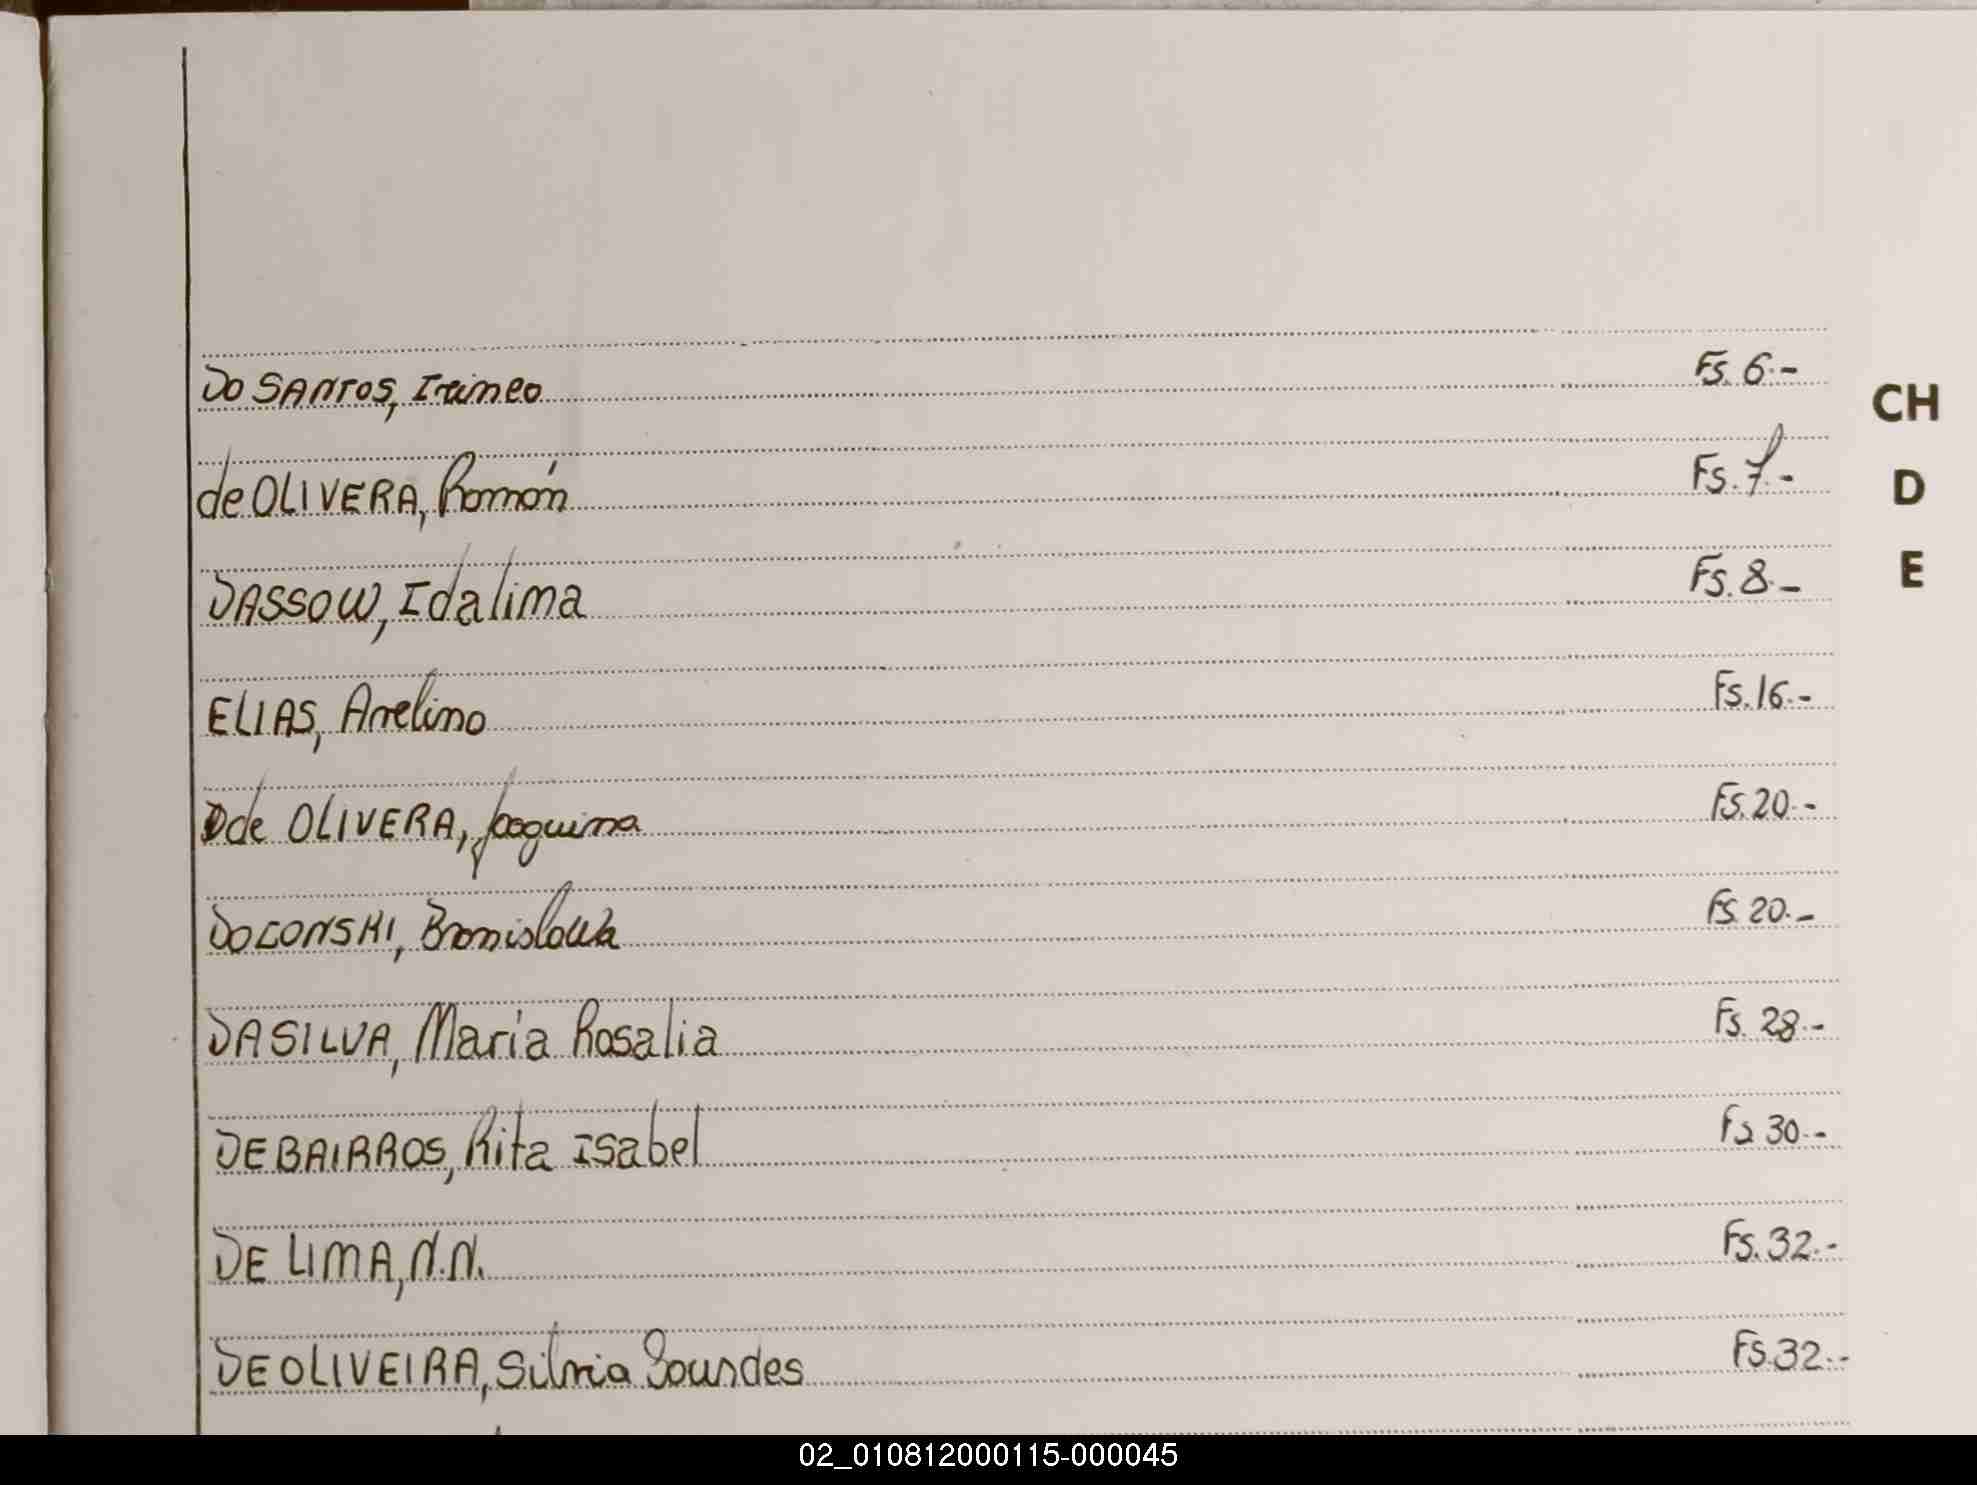 DO SANTOS, Irineo Fs. 6.-
de OLIVERA, Román Fs. 7.-
DASSOW, Idalima Fs. 8.-
ELIAS, Avelino Fs. 16.-
de OLIVERA, Joaquina Fs. 20.-
DOLONSKI, Bronislowa Fs. 20.-
DA SILVA, María Rosalia Fs. 28.-
DE BAIRROS, Rita Isabel Fs 30.-
DE LIMA, N.N. Fs. 32.-
DE OLIVEIRA, Silvia Lourdes Fs. 32.-
CH
D
E
02_010812000115-000045